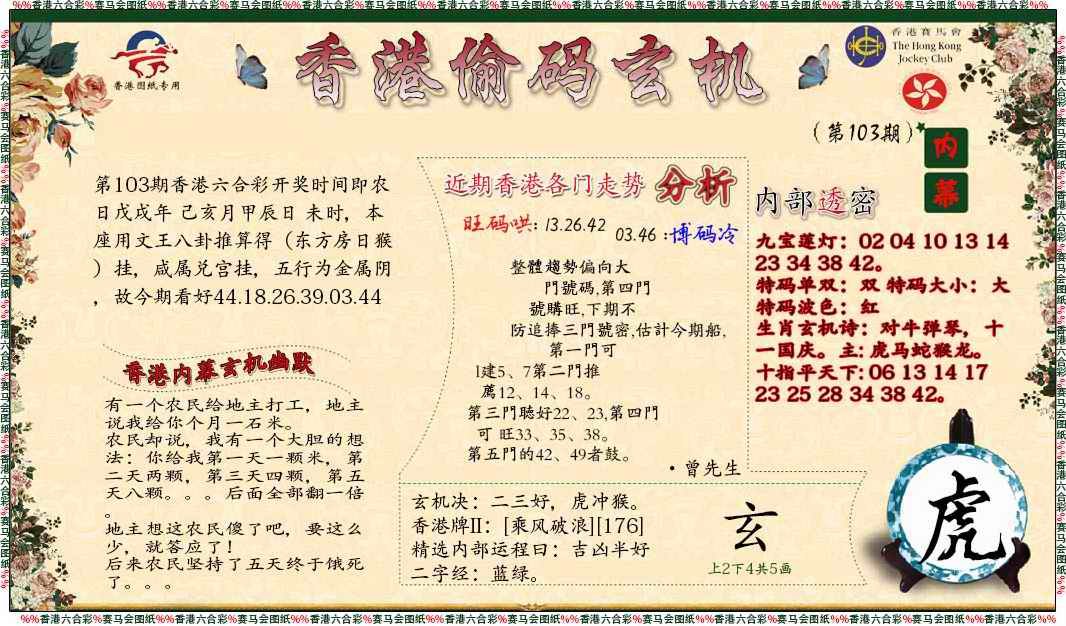 %%香港六合彩%赛马会图纸%%香港六合彩%赛马会图纸%%香港六合彩%赛马会图纸%%香港六合彩%赛马会图纸%%香港六合彩%赛马会图纸%%香港六合彩%%
香港图纸专用
香港偷码玄机
香港賽馬會
The Hong Kong
Jockey Club
（第103期）
内
幕
第103期香港六合彩开奖时间即农
日戊戌年 己亥月甲辰日 未时，本
座用文王八卦推算得（东方房日猴
）挂，咸属兑宫挂，五行为金属阴
，故今期看好44.18.26.39.03.44
香港内幕玄机幽默
有一个农民给地主打工，地主
说我给你个月一石米。
农民却说，我有一个大胆的想
法：你给我第一天一颗米，第
二天两颗，第三天四颗，第五
天八颗。。。后面全部翻一倍
。
地主想这农民傻了吧，要这么
少，就答应了！
后来农民坚持了五天终于饿死
了。。。
近期香港各门走势 分析
旺码哄: 13.26.42
03.46 :博码冷
整體趨勢偏向大
門號碼,第四門
號購旺,下期不
防追捧三門號密,估計今期船,
第一門可
1建5、7第二門推
薦12、14、18。
第三門聴好22、23,第四門
可 旺33、35、38。
第五門的42、49者鼓。
·曾先生
玄机决：二三好，虎冲猴。
香港牌II：[乘风破浪][176]
精选内部运程曰：吉凶半好
二字经：蓝绿。
玄
上2下4共5画
内部透密
九宝莲灯：02 04 10 13 14
23 34 38 42。
特码单双：双 特码大小：大
特码波色：红
生肖玄机诗：对牛弹琴，十
一国庆。主: 虎马蛇猴龙。
十指平天下: 06 13 14 17
23 25 28 34 38 42。
虎
%%香港六合彩%赛马会图纸%%香港六合彩%赛马会图纸%%香港六合彩%赛马会图纸%%香港六合彩%赛马会图纸%%香港六合彩%赛马会图纸%%香港六合彩%%